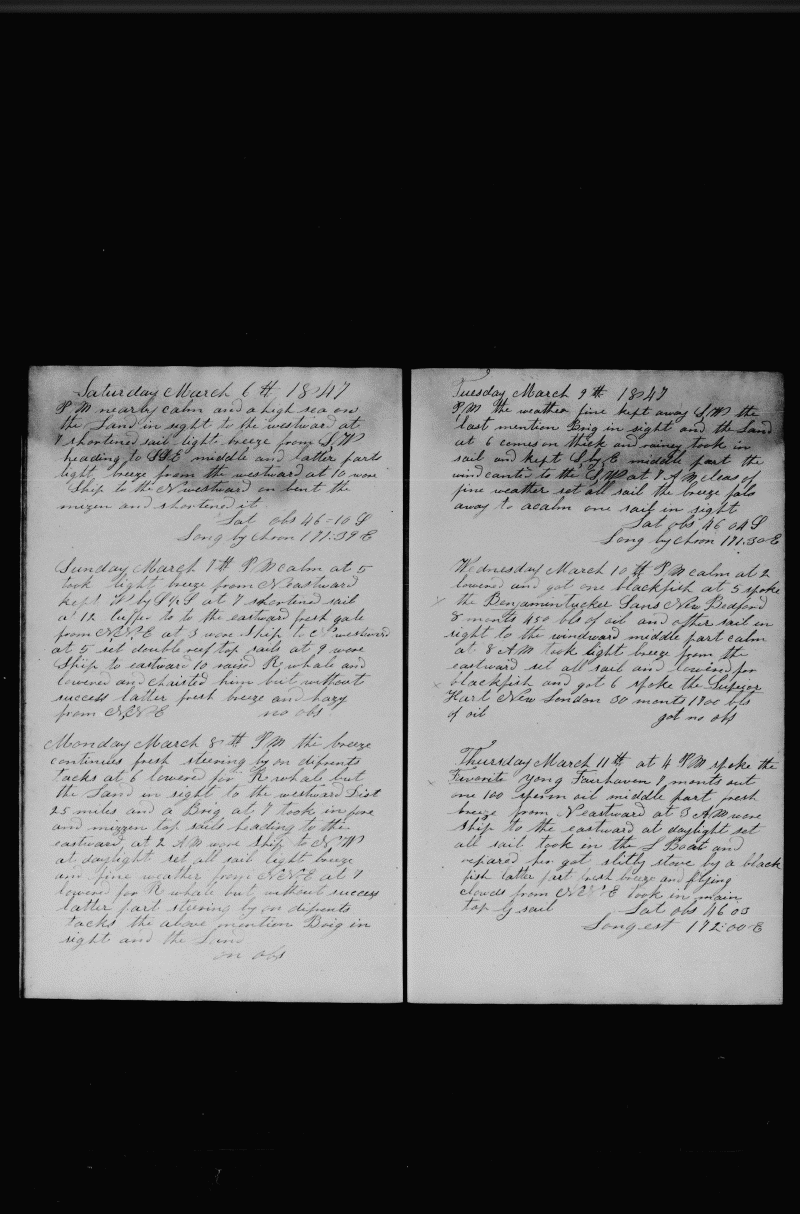 Saturday March 6th 1847
P M nearly calm and a high sea on
the Land in sight to the westward at
7 shortened sail light breeze from S,W
heading to SSE middle and latter parts
light breeze from the westward at 10 wore
Ship to the N westward on bent the
mizen and shortened it
Lat obs 46=10 S
Long by chron 171:39 E
Sunday March 7th P M calm at 5
took light breeze from N eastward
kept W by S½S at 7 shortened sail
at 12 luffer to to the eastward fresh gale
from NNE at 3 wore Ship to N westward
at 5 set double reef top sails at 9 wore
Ship to eastward 10 raised R whale and
lowered and chaisted him but without
success latter fresh breeze and hazy
from NNE no obs
Monday March 8th P M the breeze
continues fresh steering by on difrents
tacks at 6 lowered for R whale but
the Land in sight to the westward Dist
25 miles and a Brig at 7 took in fore
and mizzen top sails heading to the
eastward at 2 AM wore Ship to NW
at daylight set all sail light breeze
and fine weather from NNE at 7
lowered for R whale but without success
latter part steering by on difrents
tacks the above mention Brig in
sight and the Land
on obs
Tuesday March 9th 1847
P, M the weather fine kept away S,W the
last mention Brig in sight and the Land
at 6 comes on thick and rainey took in
sail and kept S by E middle part the
wind canted to the S,W at 7 A M cleas of
fine weather set all sail the breeze fals
away to acalm one sail in sight
Lat obs 46 04 S
Long by chron 171:30 E
Wednesday March 10th P M calm at 2
lowered and got one blackfish at 5 spoke
the Benjamentucker Sans New Bedford
8 months 450 bls of oil and other sail in
sight to the windward middle part calm
at 8 A M took light breeze from the
eastward set all sail and lowered for
blackfish and got 6 spoke the Superor
Hart New London 30 monts 1700 bls
of oil got no obs
Thursday March 11th at 4 P M spoke the
Favorite Yong Fairhaven 7 monts out
one 100 sperm oil middle part fresh
breeze from N eastward at 3 A M wore
Ship to the eastward at daylight set
all sail took in the L Boat and
repared her got slitly stove by a black
fish latter part fresh breeze and flying
clowds from NNE took in main
top G sail Lat obs 46 03
Long est 172:00 E